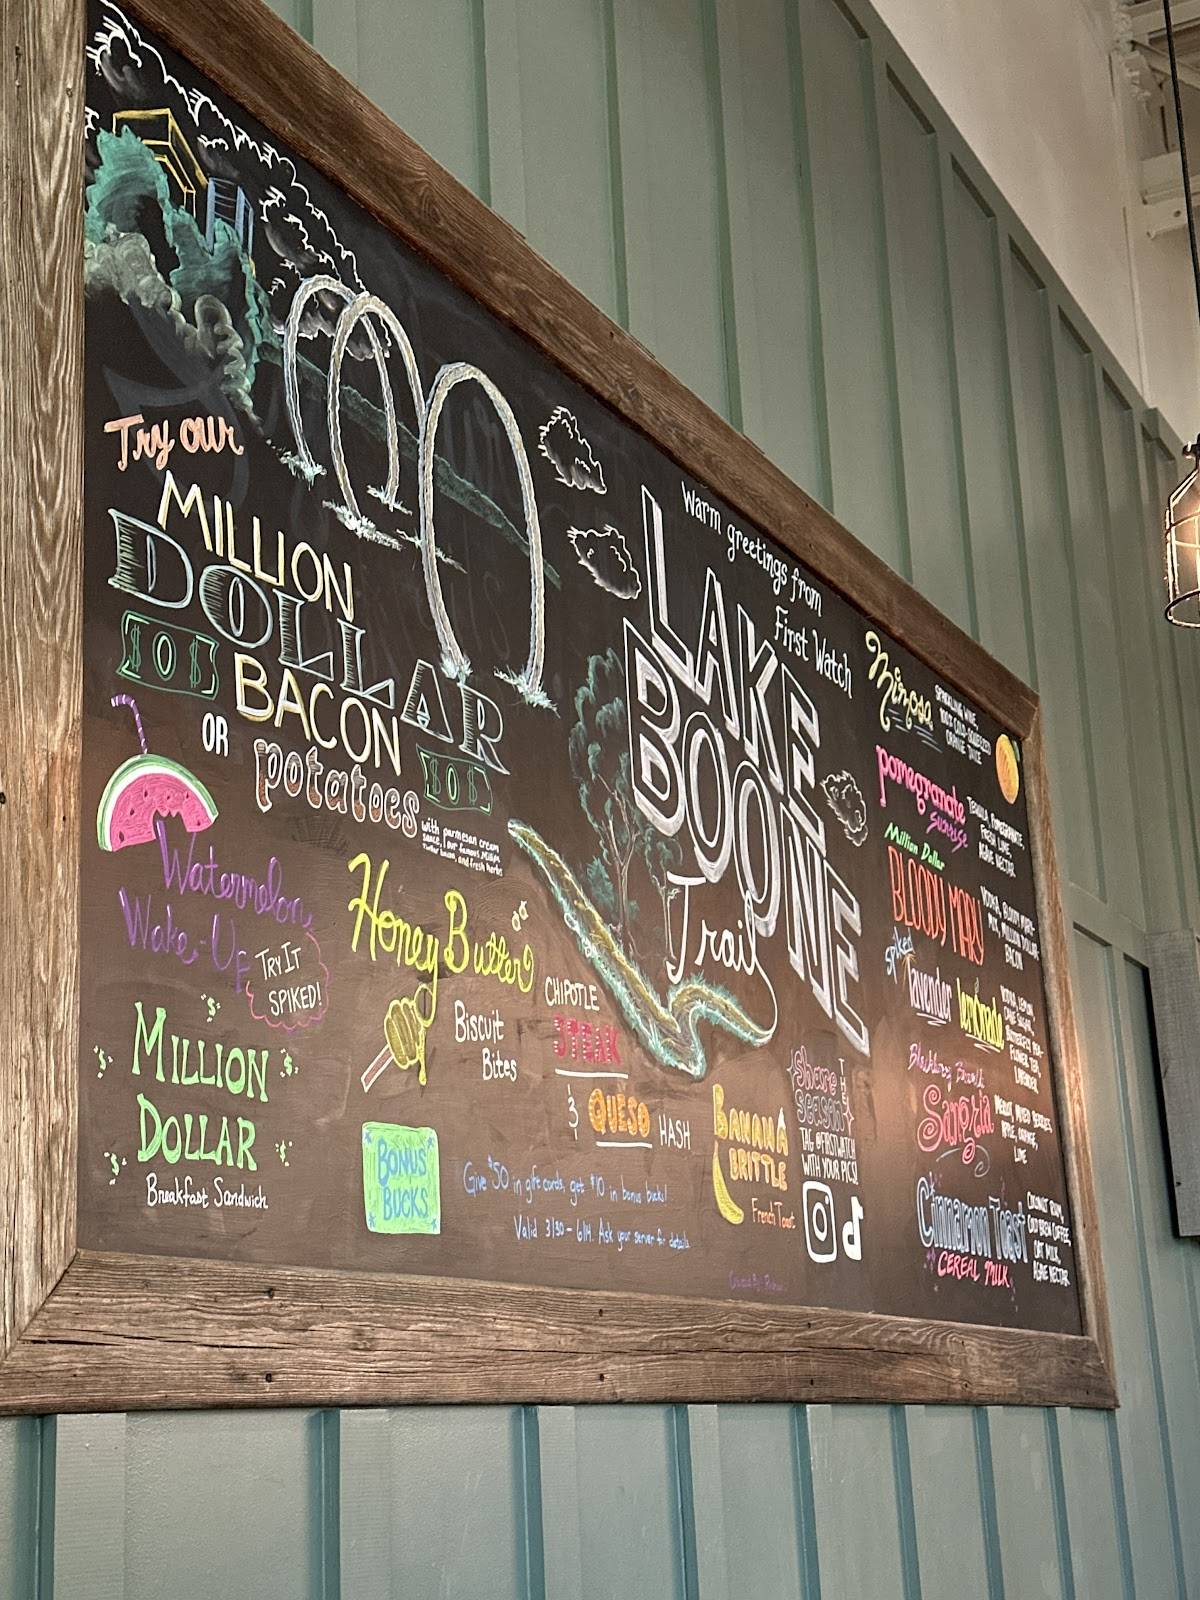 Try our
MILLION
DOLLAR
$0$
BACON
$0$
OR
potatoes
with parmesan cream
Watermelon
Wake-Up
TRY IT
SPIKED!
MILLION
DOLLAR
Breakfast Sandwich
Honey Butter
Biscuit
Bites
CHIPOTLE
STEAK
& QUESO HASH
BONUS
BUCKS
Give $50 in gift cards, get $10 in bonus bucks!
Valid 3/30 - 6/14. Ask your server for details
BANANA
BRITTLE
French Toast
Warm greetings from
First Watch
LAKE
BOONE
Trail
Share
THE
season
TAG @FIRSTWATCH
WITH YOUR PICS!
Mimosa
SPARKLING WINE,
100% COLD-SQUEEZED
ORANGE JUICE
pomegranate
sunrise
TEQUILA, POMEGRANATE,
FRESH LIME,
AGAVE NECTAR
Million Dollar
BLOODY MARY
VODKA, BLOODY MARY
MIX, MILLION DOLLAR
BACON
spiked
lavender lemonade
VODKA, LEMON,
CANE SUGAR,
BUTTERFLY PEA-
FLOWER TEA,
LAVENDER
Sangria
MERLOT, MIXED BERRIES,
APPLE, ORANGE,
LIME
Cinnamon Toast
CEREAL MILK
COCONUT RUM,
COLD BREW COFFEE,
OAT MILK,
AGAVE NECTAR